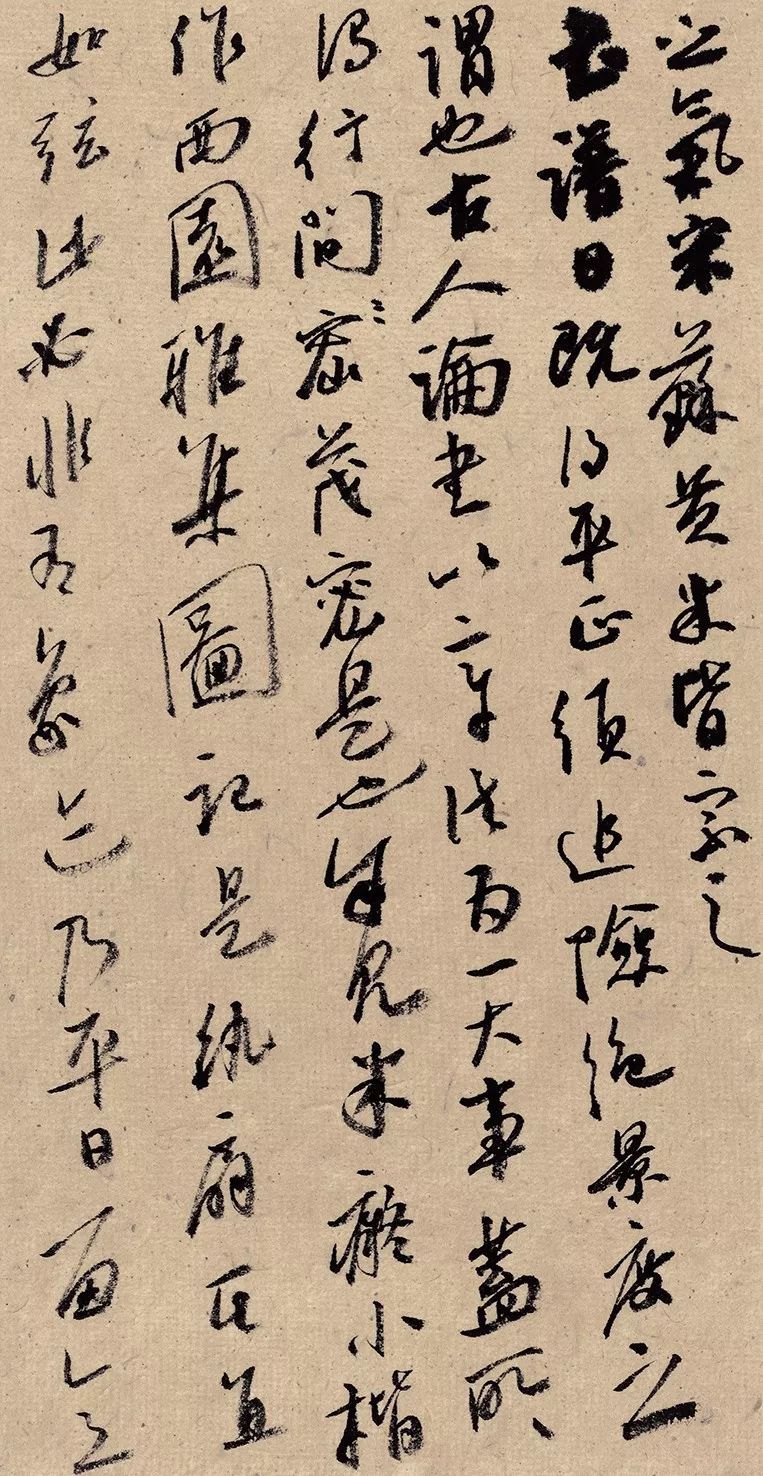 之氣宋蘇黃米皆宗之
書譜曰既得平正須追險絕景度之
謂也古人論書以章法為一大事蓋所
得行間密茂密是也見米癡小楷
作西園雅集圖記是紈扇其直
如弦此必非有道乃平日留意